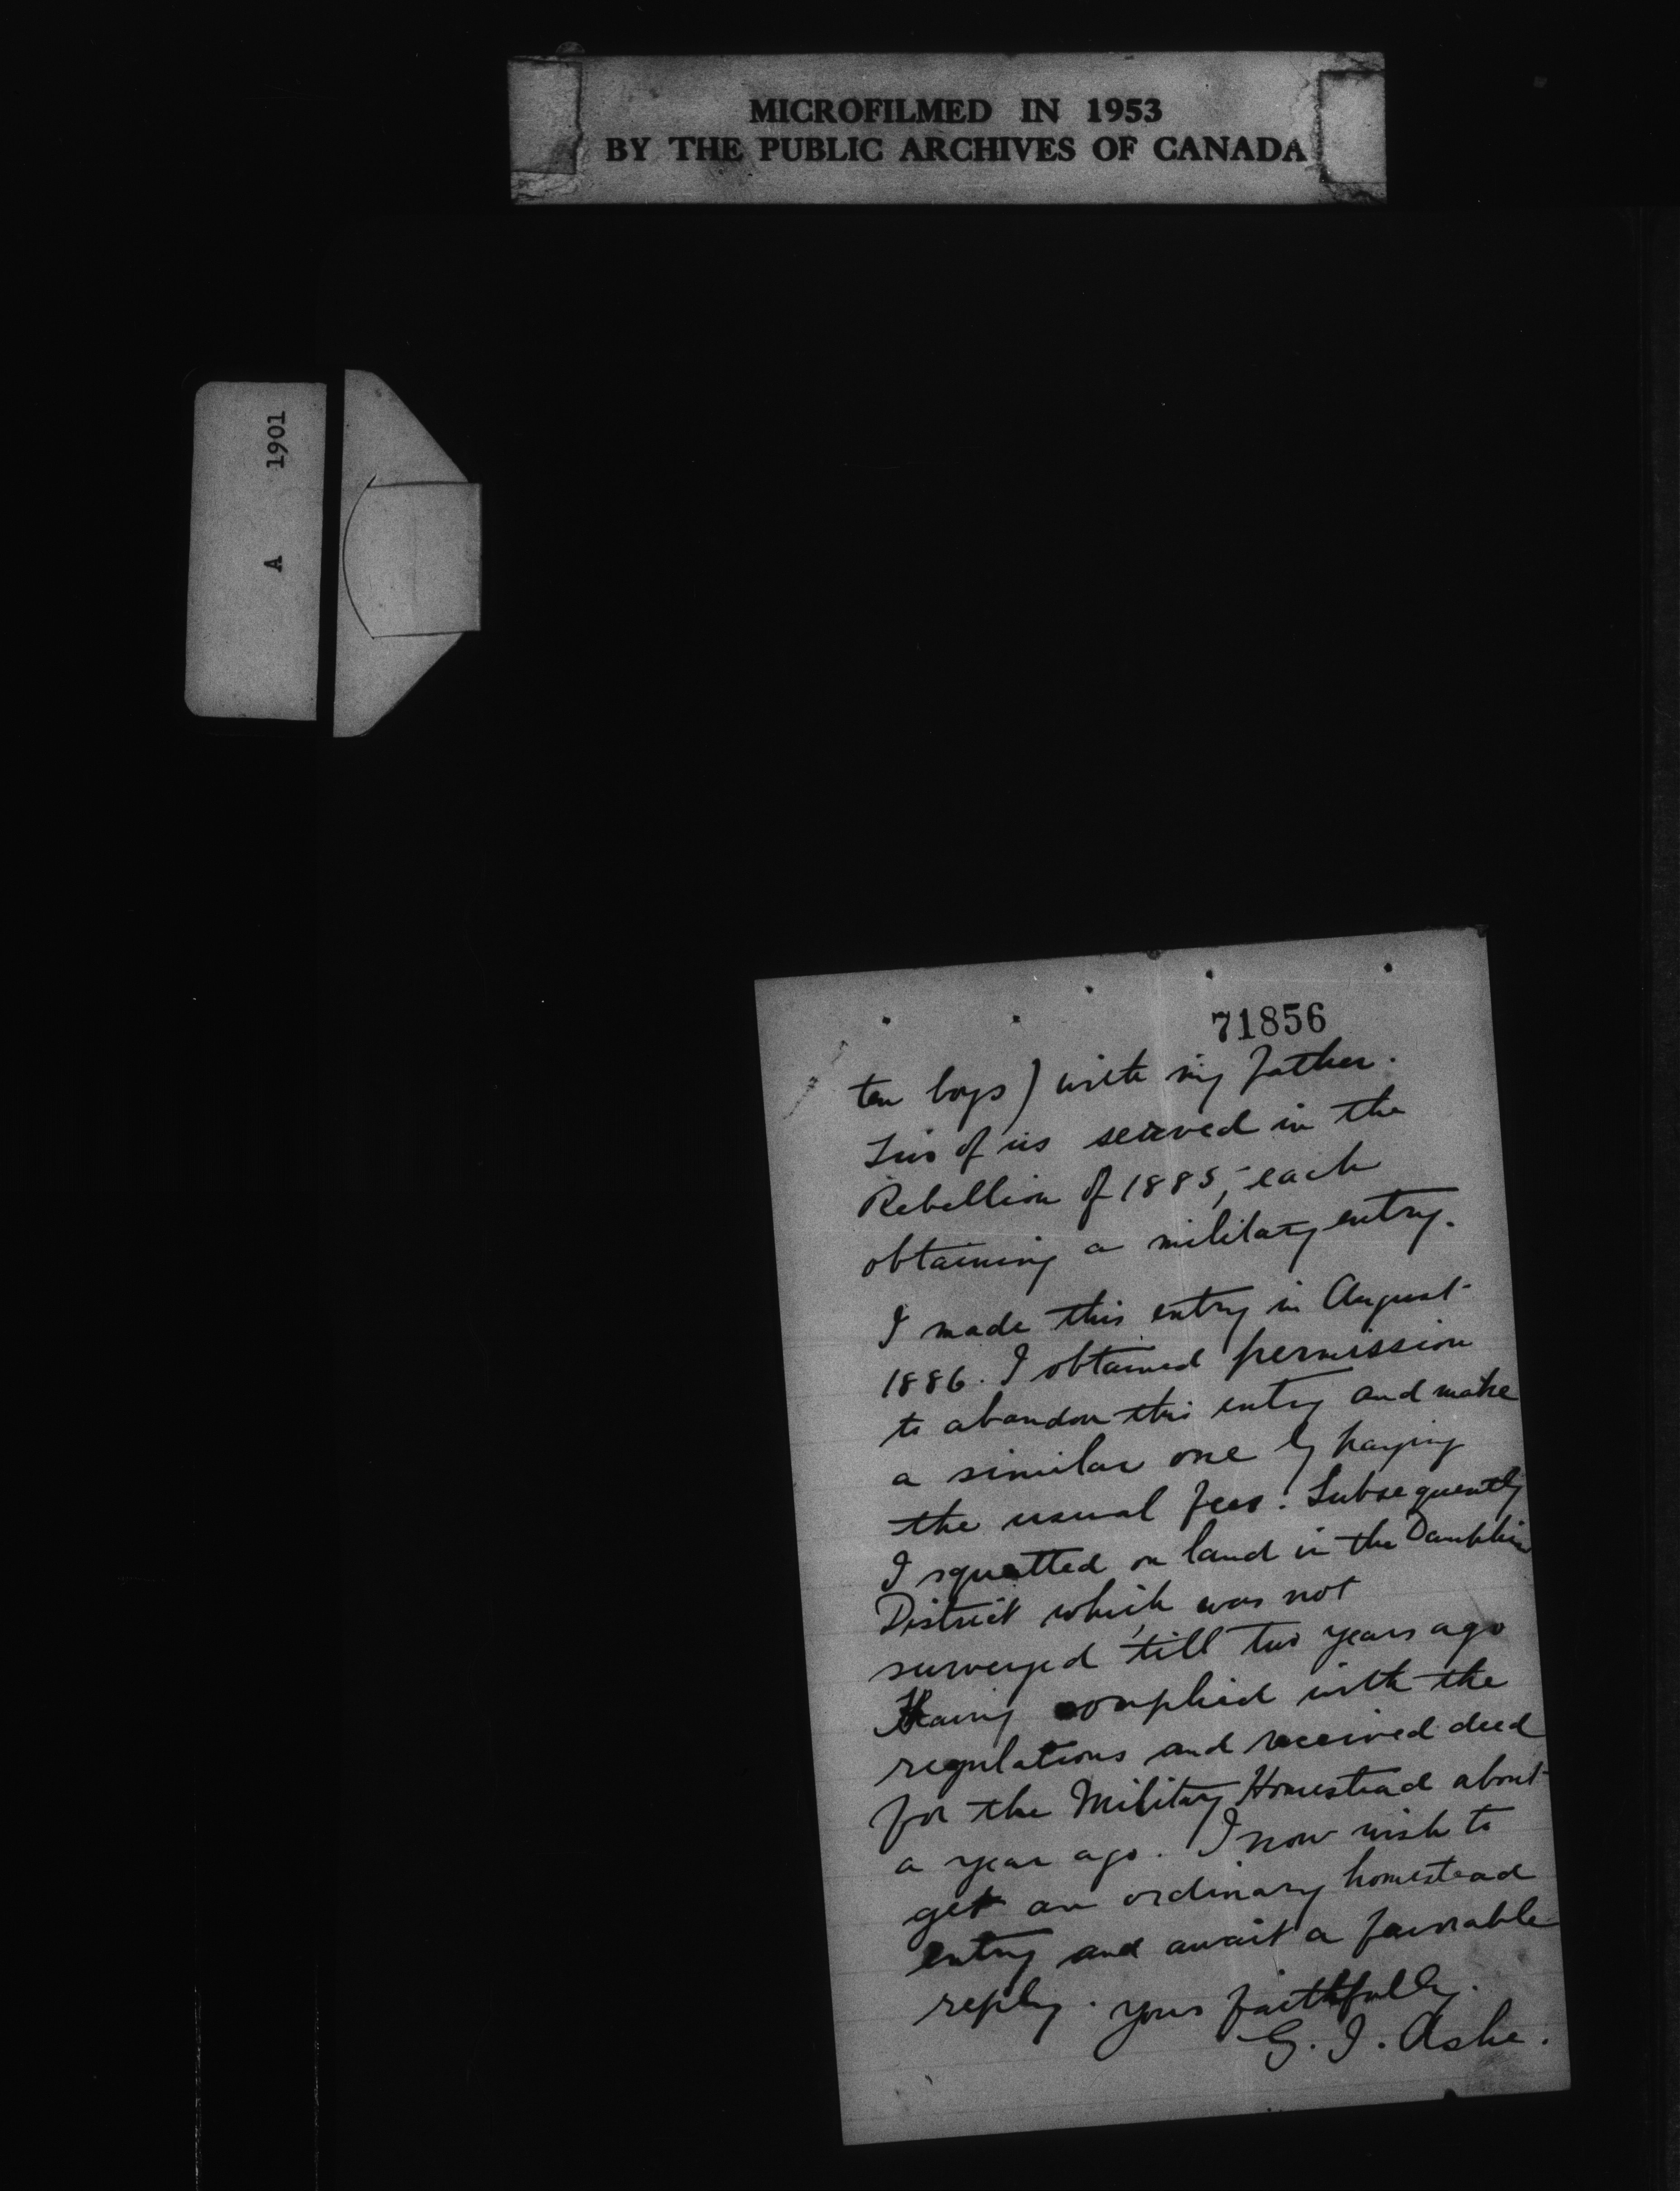 MICROFILMED IN 1953
BY THE PUBLIC ARCHIVES OF CANADA
A 1901
71856
ten boys) with my father.
Two of us served in the
Rebellion of 1885, - each
obtaining a military entry.
I made this entry in August
1886. I obtained permission
to abandon this entry and make
a similar one by paying
the usual fees. Subsequently
I squatted on land in the Dauphin
District which was not
surveyed 'till two years ago
Having complied with the
regulations and received deed
for the Military Homestead about
a year ago. I now wish to
get an ordinary homestead
entry and await a favorable
reply. yours faithfully.
G. I. Ashe.